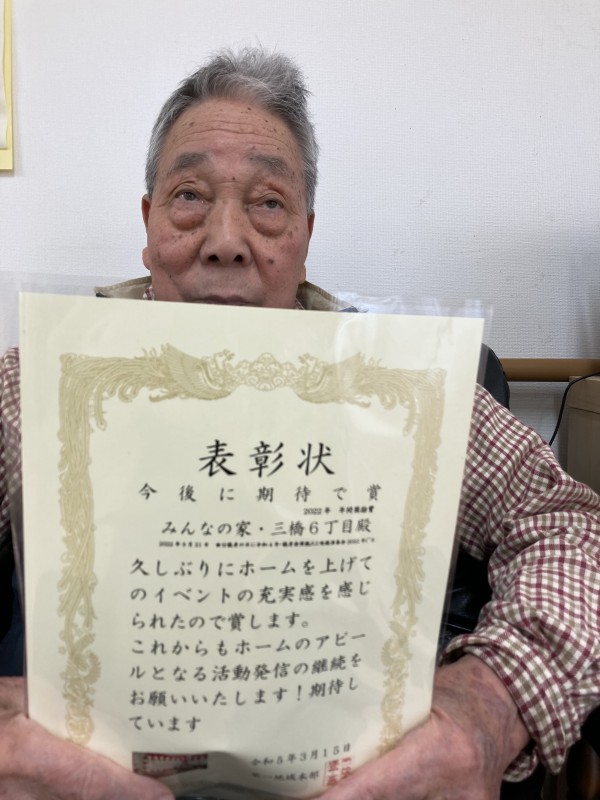 表彰状
今後に期待で賞
2022年 年間
みんなの家・三橋6丁目殿
久しぶりにホームを上げて
のイベントの充実感を感じ
られたので賞します。
これからもホームのアピー
ルとなる活動発信の継続を
お願いいたします!期待し
ています
令和5年3月15日